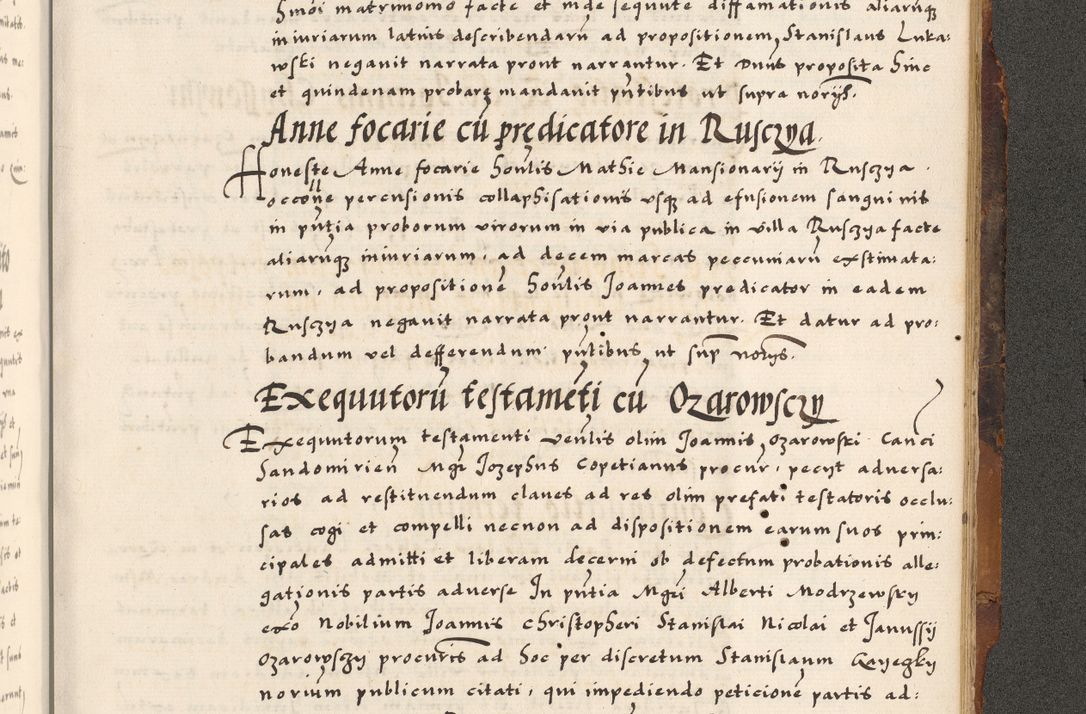 hmoi matrimonio facte et inde sequute diffamationis aliarũq
iniuriarum latius describendarũ ad propositionem Stanislaus Luka-
wski negauit narrata prout narrantur. Et Dnus proposita hinc
et quindenam probare mandauit pñtibus ut supra norijs.
Anne focarie cũ prędicatore in Rusczya.
Honeste Anne focarie hoñlis Mathie Mansionarij in Rusczya.
occone percusionis collaphisationis vsq ad efusionem sanguinis
in pñtia proborum virorum in via publica in villa Rusczya facte
aliarũq iniuriarum, ad decem marcas peccuniarũ exstimata-
rum, ad propositionẽ hoñlis Joannes predicator in eadem
Rusczya negauit narrata prout narrantur. Et datur ad pro:
bandum vel defferendum pñtibus ut sup norijs.
Exequutorũ testamẽti cũ Ozarowsczy
Exequutorum testamenti veñlis olim Joannis Ozarowski Canci
Sandomirieñ Mgr Jozephus Copetianus procur, pecijt adversa-
rios ad restituendum claues ad res olim prefati testatoris occlu:
sas cogi et compelli necnon ad dispositionem earum suos prin:
cipales admitti et liberam decerni ob defectum probationis alle-
gationis partis adverse In pñtia Mgri Alberti Modrzewsky
exõ Nobilium Joannis Christopheri Stanislai Nicolai et Janussij
Ozarowszy procuris ad hoc per discretum Stanislaum
norium publicum citati, qui impediendo peticionẽ partis ad: